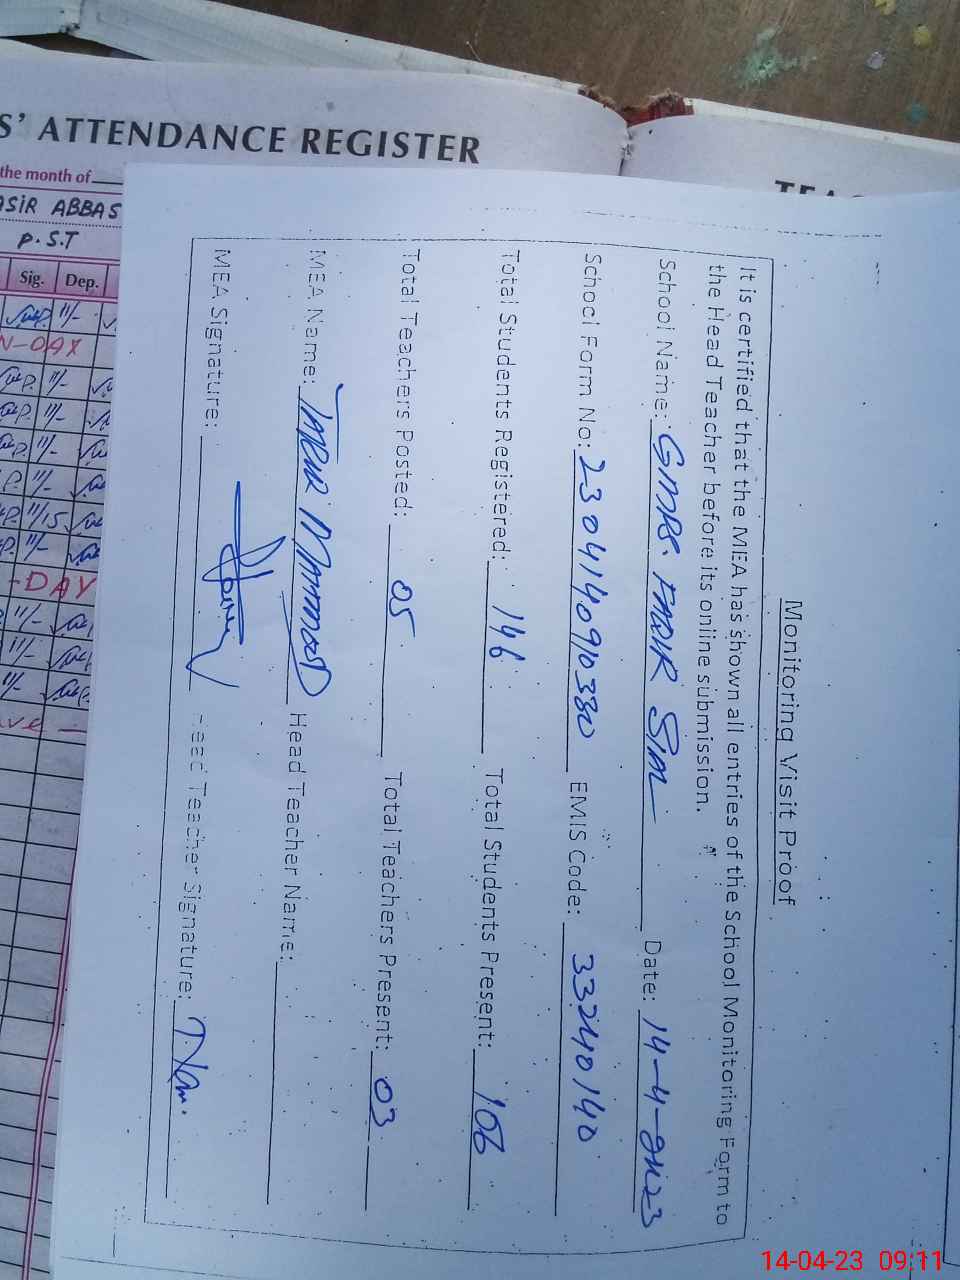 S' ATTENDANCE REGISTER
the month of
ASIR ABBAS
P.S.T
Sig. Dep.
N-DAY
-DAY
TEA
Monitoring Visit Proof
It is certified that the MEA has shown all entries of the School Monitoring Form to
the Head Teacher before its online submission.
School Name: GMPS. Date: 14-4-2023
School Form No: 230414090330 EMIS Code: 33240140
Total Students Registered: 146 Total Students Present: 106
Total Teachers Posted: 05 Total Teachers Present: 03
MEA Name: Tahir Mahmood Head Teacher Name:
MEA Signature: Head Teacher Signature:
14-04-23 09:11